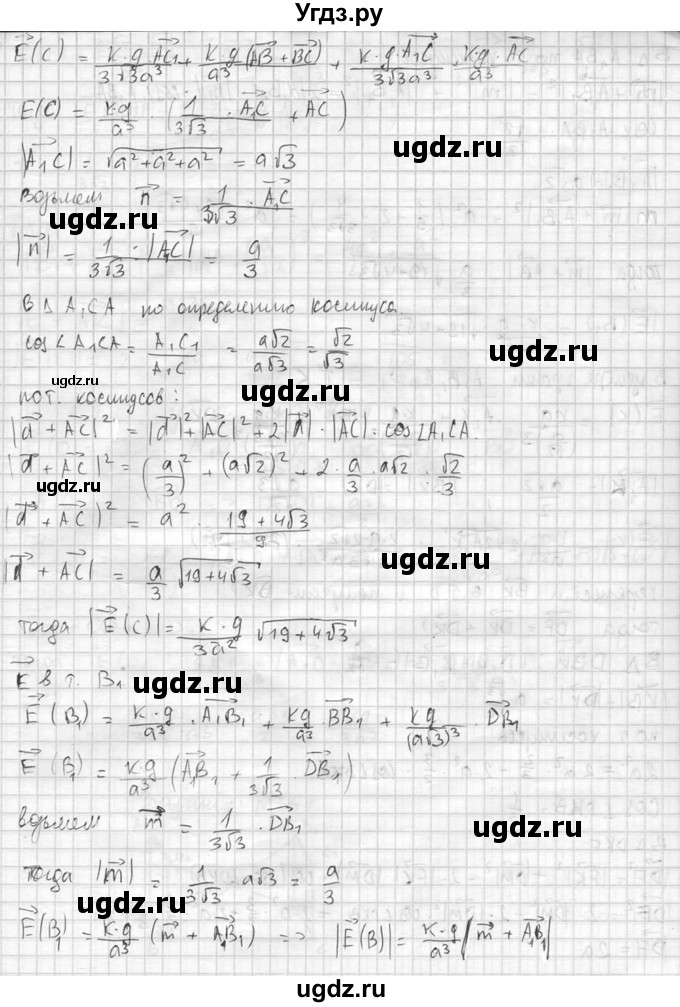 Угдз.ру
E⃗(C) = k·g·AC₁/3√3a³ + k·g/a³ (AB⃗ + BC⃗) + k·g·A₁C⃗/3√3a³ · k·g/a³ · AC⃗
E(C) = k·g/a³ · (1/3√3 · A₁C⃗ + AC⃗)
|A₁C⃗| = √(a²+a²+a²) = a√3
ugdz.ru
возьмем n⃗ = 1/3√3 · A₁C⃗
ugdz.ru
|n⃗| = 1/3√3 · |A₁C⃗| = a/3
ugdz.ru
в Δ A₁CA по определению косинуса
cos∠A₁CA = A₁C₁/A₁C = a√2/a√3 = √2/√3
ugdz.ru
ugdz.ru
по т. косинусов:
|d⃗ + AC⃗|² = |d⃗|² + |AC⃗|² + 2|d⃗| · |AC⃗| · cos∠A₁CA
|d⃗ + AC⃗|² = (a/3)² + (a√2)² + 2 · a/3 · a√2 · √2/3
ugdz.ru
|d⃗ + AC⃗|² = a² · 19+4√3/9
ugdz.ru
|d⃗ + AC⃗| = a/3 √19+4√3
тогда |E⃗(C)| = k·g/3a² √19+4√3
ugdz.ru
E⃗ в т. B₁
E⃗(B₁) = k·g/a³ · A₁B₁⃗ + kg/a³ · BB₁⃗ + kg/(a√3)³ · DB₁⃗
E⃗(B₁) = k·g/a³ (A₁B₁⃗ + 1/3√3 · DB₁⃗)
возьмем m⃗ = 1/3√3 · DB₁⃗
ugdz.ru
тогда |m⃗| = 1/3√3 · a√3 = a/3
ugdz.ru
E⃗(B₁) = k·g/a³ (m⃗ + A₁B₁⃗) => |E⃗(B)| = k·g/a³ |m⃗ + A₁B₁⃗|
Угдз.ру